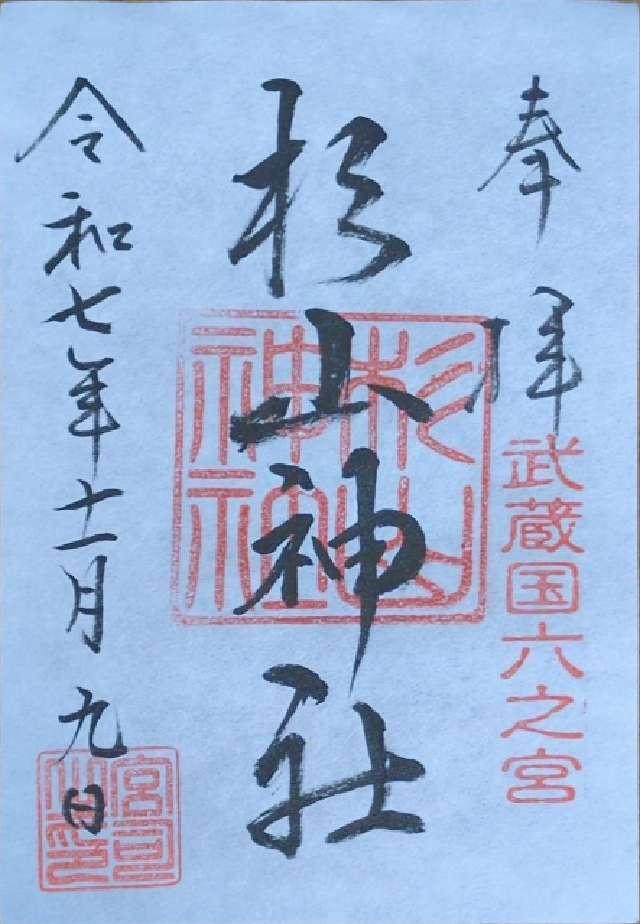 奉拝
武蔵国六之宮
杉山神社
杉山
神社
令和七年十一月九日
宮司
之印